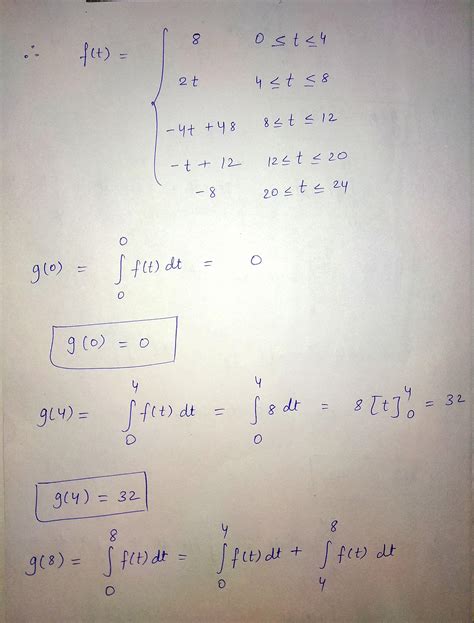 ∴ f(t) = { 8 0 ≤ t ≤ 4
2t 4 ≤ t ≤ 8
-4t + 48 8 ≤ t ≤ 12
-t + 12 12 ≤ t ≤ 20
-8 20 ≤ t ≤ 24
g(0) = ∫₀⁰ f(t) dt = 0
g(0) = 0
g(4) = ∫₀⁴ f(t) dt = ∫₀⁴ 8 dt = 8 [t]₀⁴ = 32
g(4) = 32
g(8) = ∫₀⁸ f(t) dt = ∫₀⁴ f(t) dt + ∫₄⁸ f(t) dt